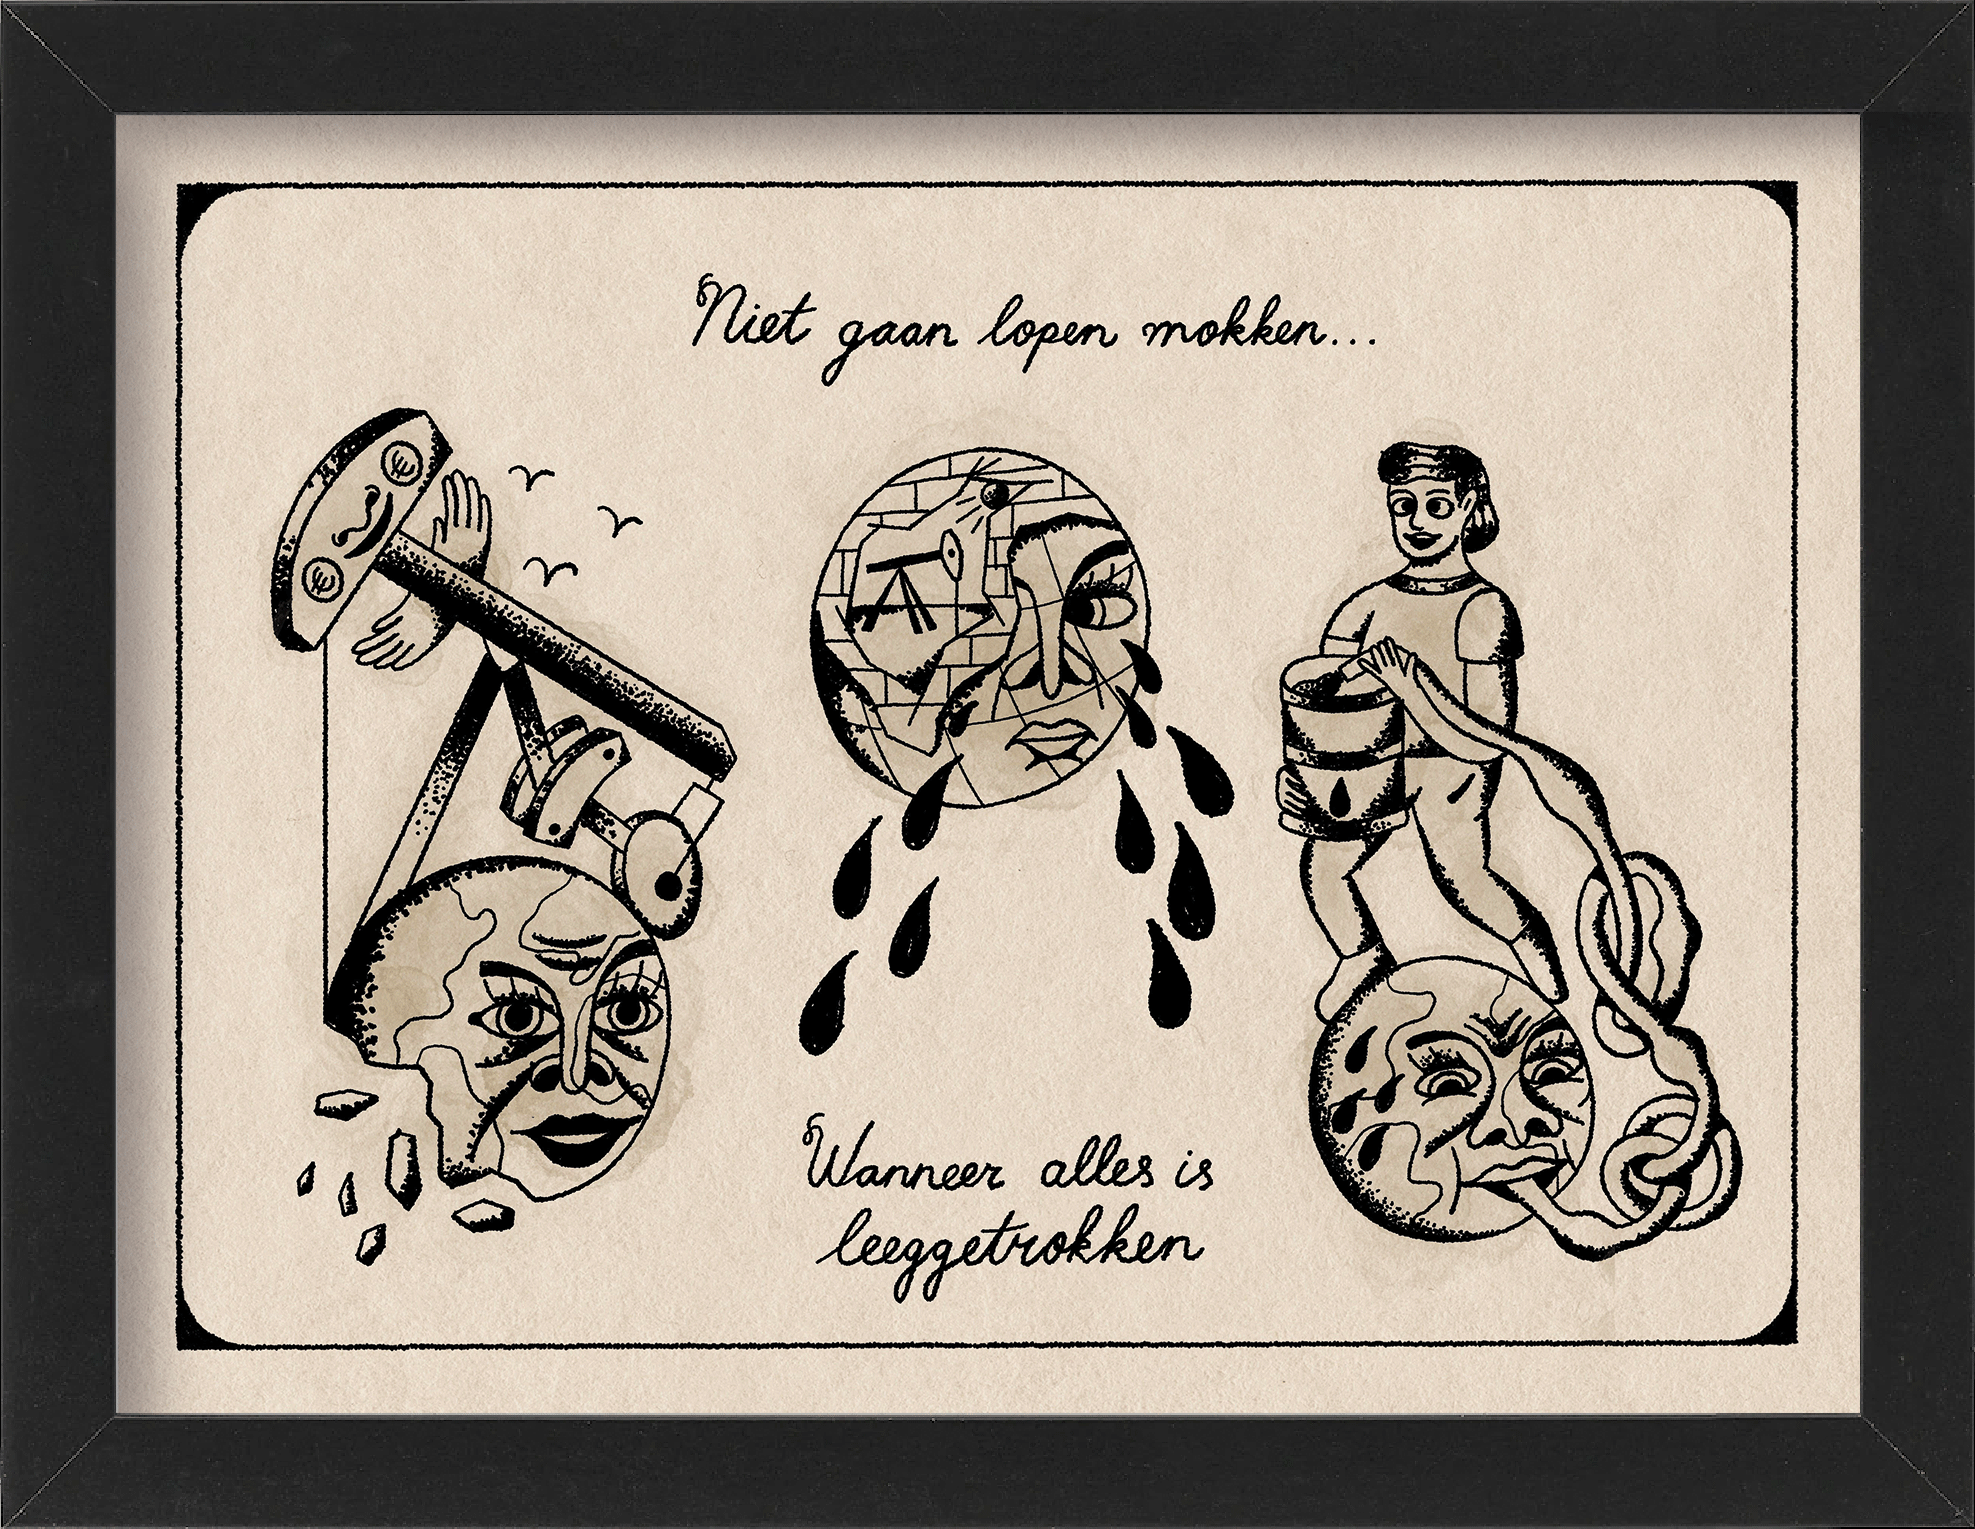 Niet gaan lopen mokken...
Wanneer alles is
leeggetrokken